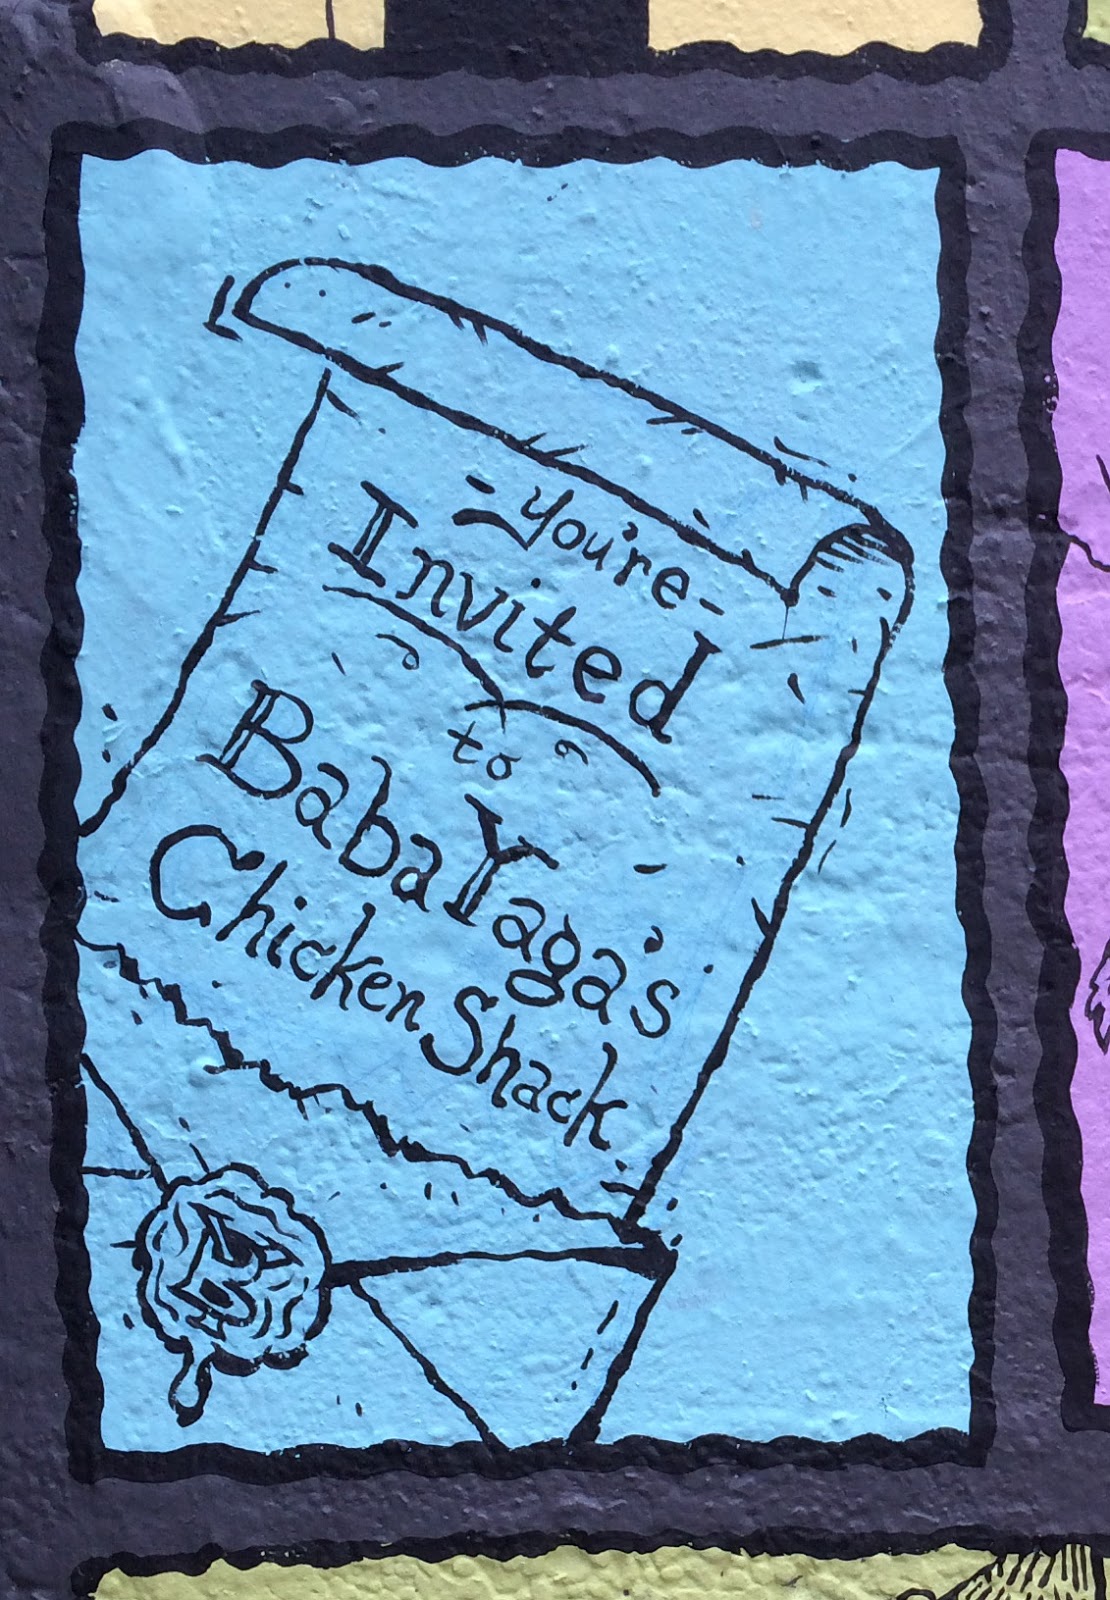 -You're-
Invited
to
BabaYaga's
Chicken Shack